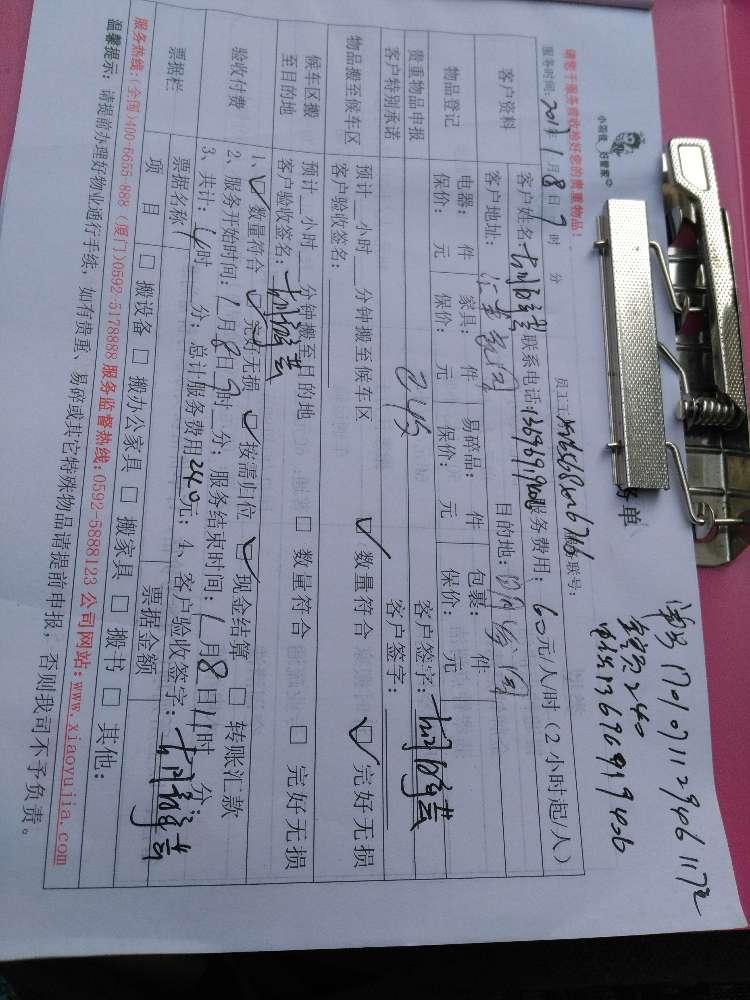 单号 170107112946 1172
金额 240
电话 13696919406
务单
小羽佳 好管家
请您于服务前收拾好您的贵重物品!
员工工
联号:
服务时间: 201 年 1 月 8 日 9 时 分
客户资料 客户姓名: 联系电话: 服务费用: 60元/人/时 (2小时起/人)
客户地址: 目的地:
物品登记 电器: 件 家具: 件 易碎品: 件 包裹: 件
保价: 元 保价: 元 保价: 元 保价: 元
贵重物品申报
客户特别承诺 客户签字:
物品搬至候车区 预计__小时__分钟搬至候车区 数量符合 完好无损
客户验收签名: 客户签字:
候车区搬至目的地 预计__小时__分钟搬至目的地 □ 数量符合 □ 完好无损
客户验收签名:
验收付费 1、 数量符合 完好无损 按需归位 现金结算 □ 转账汇款
2、服务开始时间: 1月8日9时 分; 服务结束时间: 1月8日11时 分;
3、共计: 4时 分; 总计服务费用240元; 4、客户验收签字:
票据栏 票据名称 票据金额
项目 □ 搬设备 □ 搬办公家具 □ 搬家具 □ 搬书 □ 其他:
服务热线:(全国)400-6655-888 (厦门)0592-5178888 服务监督热线:0592-5888123 公司网站:www.xiaoyujia.com
温馨提示: 请提前办理好物业通行手续, 如有贵重、易碎或其它特殊物品请提前申报, 否则我司不予负责。